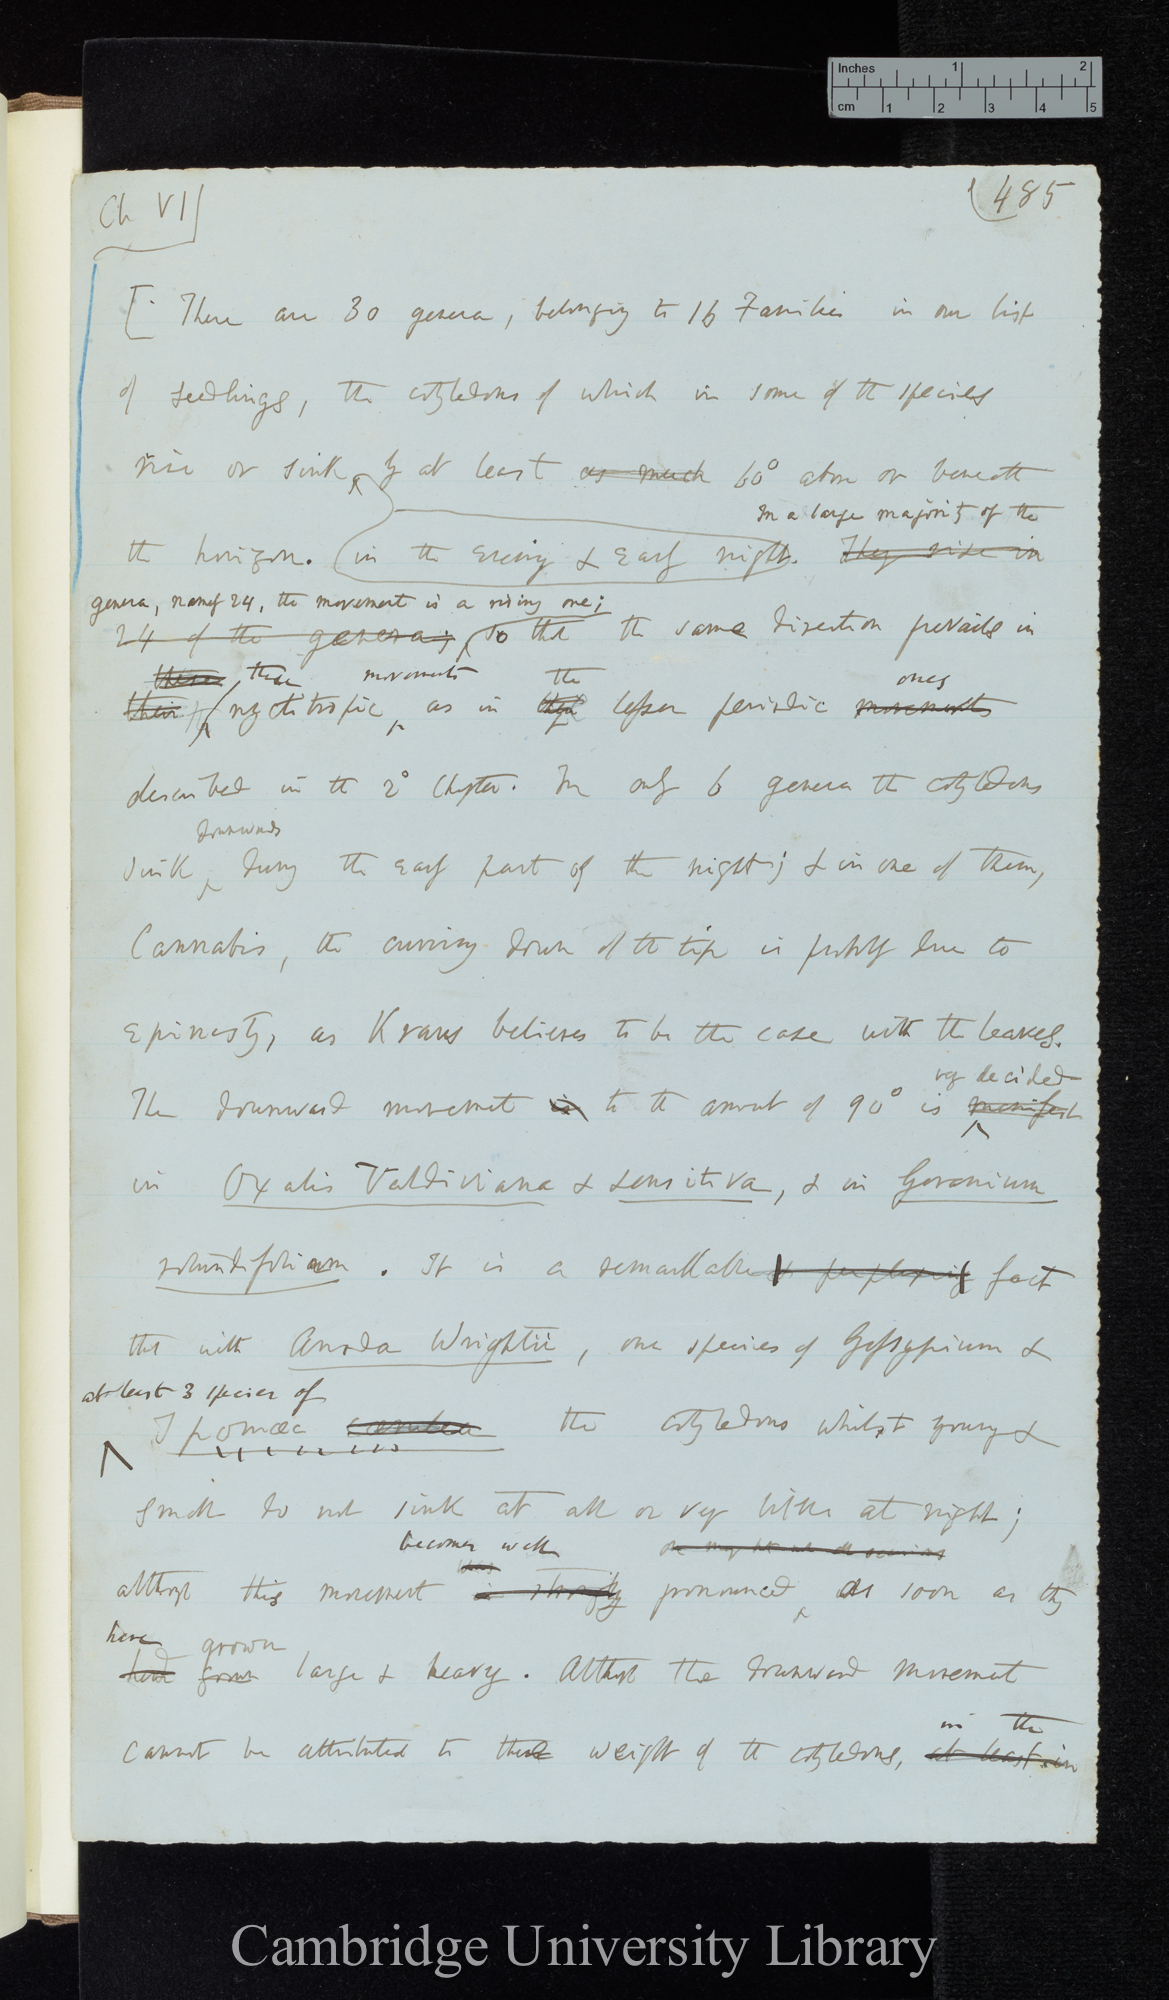 Inches 1 2
cm 1 2 3 4 5
Ch VI
485
[There are 30 genera, belonging to 16 Families in our list
of seedlings, the cotyledons of which in some of the species
rise or sink by at least as much 60° above or beneath
In a large majority of the
the horizon. (in the evening & early night. They rise in
genera, namely 24, the movement is a rising one;
24 of the genera; so that the same direction prevails in
these these movements the ones
their nyctitropic, as in lesser periodic movements
described in the 2° Chapter. In only 6 genera the cotyledons
downwards
sink during the early part of the night; & in one of them,
Cannabis, the curving down of the tip is probably due to
epinasty, as Kraus believes to be the case with the leaves.
very decided
The downward movement is to the amount of 90° is manifest
in Oxalis Valdiviana & sensitiva, & in Geranium
rotundifolium. It is a remarkable & perplexing fact
that with Anoda Wrightii, one species of Gossypium &
at least 3 species of
Ipomæa cærulea the cotyledons whilst young &
small do not sink at all or very little at night;
becomes well
although this movement is strongly pronounced, as soon as they
have grown
have grown large & heavy. Although the downward movement
in the
cannot be attributed to the weight of the cotyledons, at least in
Cambridge University Library